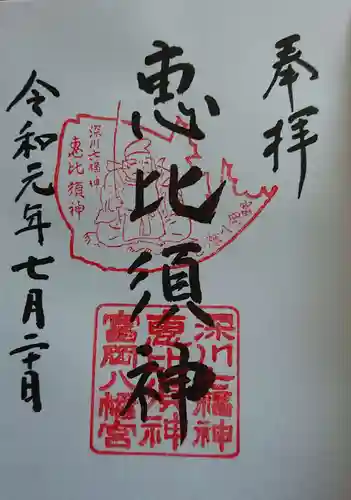 奉拝
恵比須神
令和元年七月二十日
深川七福神
恵比須神
富岡八幡宮
深川七福神
恵比須神
富岡八幡宮